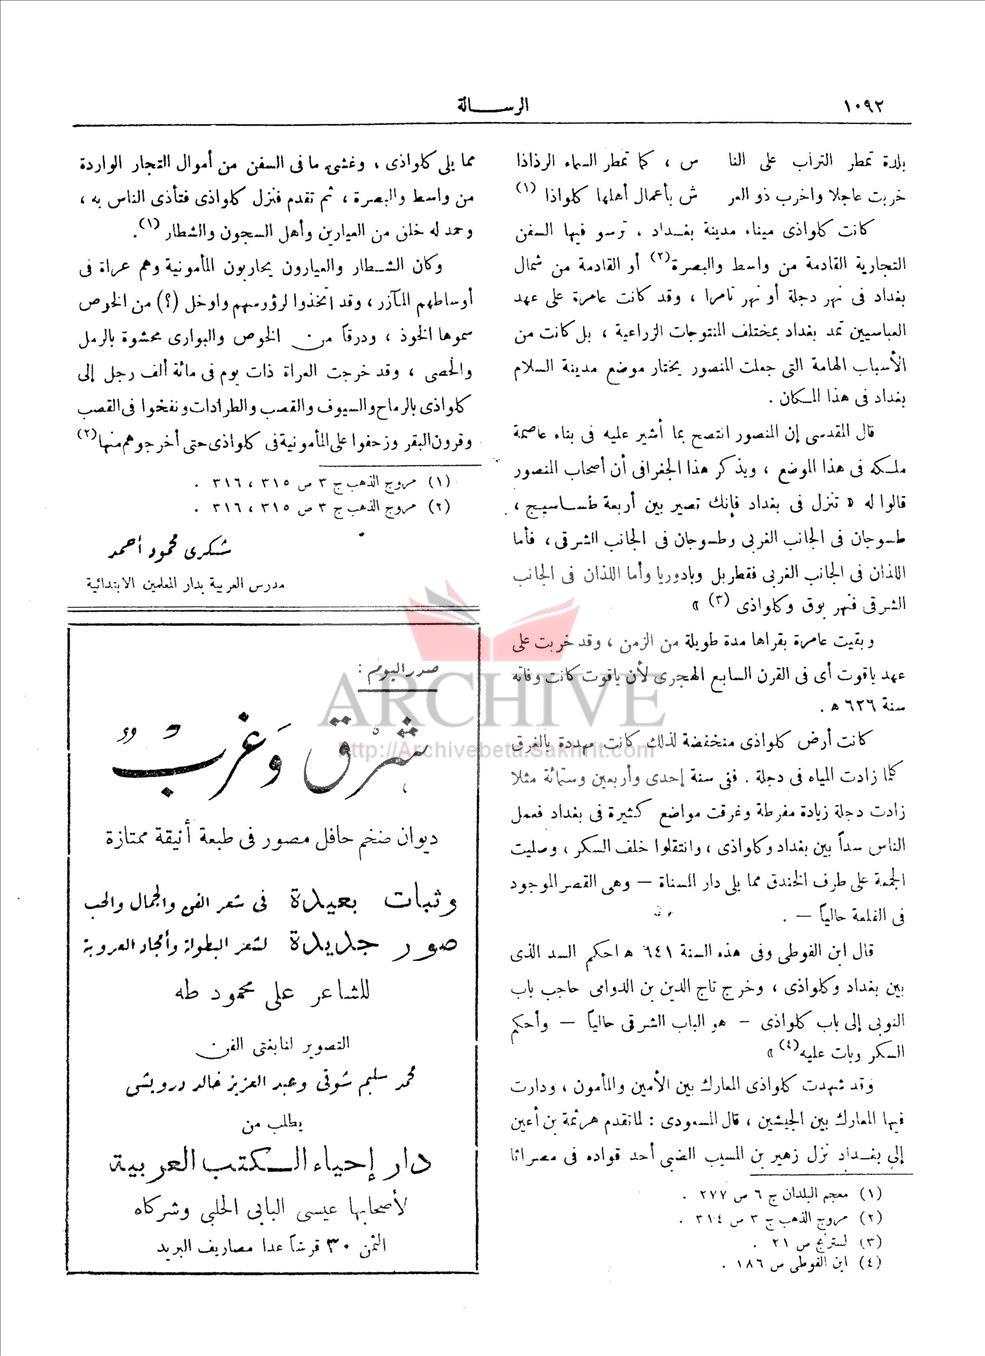 ١٠٩٢
الرســـالة
بلدة تمطر التراب على النا س ، كما تمطر السماء الرذاذا
خربت عاجلا واخرب ذو العر ش بأعمال أهلها كلواذا (١)
كانت كلواذى ميناء مدينة بغـداد ، ترسو فيها السفن
التجارية القادمة من واسط والبصرة(٢) أو القادمة من شمال
بغداد فى نهر دجلة أو نهر تامرا ، وقد كانت عامرة على عهد
العباسيين تمد بغداد بمختلف المنتوجات الزراعية ، بل كانت من
الأسباب الهامة التى جعلت المنصور يختار موضع مدينة السلام
بغداد فى هذا المكان .
قال المقدسى إن المنصور انتصح بما أشير عليه فى بناء عاصمة
ملكه فى هذا الموضع ، ويذكر هذا الجغرافى أن أصحاب المنصور
قالوا له « تنزل فى بغداد فإنك تصير بين أربعة طساسيج ،
طسوجان فى الجانب الغربى وطسوجان فى الجانب الشرقى ، فأما
اللذان فى الجانب الغربى فقطربل وبادوريا وأما اللذان فى الجانب
الشرقى فنهر بوق وكلواذى (٣) »
وبقيت عامرة بقراها مدة طويلة من الزمن ، وقد خربت على
عهد ياقوت أى فى القرن السابع الهجرى لأن ياقوت كانت وفاته
سنة ٦٢٦ هـ .
كانت أرض كلواذى منخفضة لذلك كانت مهددة بالغرق
كلما زادت المياه فى دجلة . ففى سنة إحدى وأربعين وستمائة مثلا
زادت دجلة زيادة مفرطة وغرقت مواضع كثيرة فى بغداد فعمل
الناس سداً بين بغداد وكلواذى ، وانتقلوا خلف السكر ، وصليت
الجمعة على طرف الخندق مما يلى دار المسناة — وهى القصر الموجود
فى القلعة حالياً — .
قال ابن الفوطى وفى هذه السنة ٦٤١ هـ احكم السد الذى
بين بغداد وكلواذى ، وخرج تاج الدين بن الدوامى حاجب باب
النوبى إلى باب كلواذى — هو الباب الشرقى حالياً — وأحكم
السكر وبات عليه(٤) »
وقد شهدت كلواذى المعارك بين الأمين والمأمون ، ودارت
فيها المعارك بين الجيشين ، قال المسعودى : لما تقدم هرثمة بن أعين
إلى بغـداد نزل زهير بن المسيب الضبى أحد قواده فى
(١) معجم البلدان ج ٦ ص ٢٧٧ .
(٢) مروج الذهب ج ٣ ص ٣١٤ .
(٣) لسترنج ص ٢١ .
(٤) ابن الفوطى ص ١٨٦ .
مما يلى كلواذى ، وغشى ما فى السفن من أموال التجار الواردة
من واسط والبصرة ، ثم تقدم فنزل كلواذى فتأذى الناس به ،
وحمد له خلق من العيارين وأهل السجون والشطار (١).
وكان الشـطار والعيارون يحاربون المأمونية وهم عراة فى
أوساطهم المآزر ، وقد اتخذوا لرؤوسهم واوخل (؟) من الخوص
سموها الخوذ ، ودرقاً من الخوص والبوارى محشوة بالرمل
والحصى ، وقد خرجت العراة ذات يوم فى مائة ألف رجل إلى
كلواذى بالرماح والسيوف والقصب والطرادات ونفخوا فى القصب
وقرون البقر وزحفوا على المأمونية فى كلواذى حتى أخرجوهم منها(٢)
(١) مروج الذهب ج ٣ ص ٣١٥ ، ٣١٦ .
(٢) مروج الذهب ج ٣ ص ٣١٥ ، ٣١٦ .
شكرى محمود أحمد
مدرس العربية بدار المعلمين الابتدائية
صدر اليوم :
شرق وَغربٌ
ديوان ضخم حافل مصور فى طبعة أنيقة ممتازة
وثبات بعيدة فى شعر الفن والجمال والحب
صور جديدة لشعر البطولة وأمجاد العروبة
للشاعر على محمود طه
التصوير لنابغتى الفن
محمد سليم شوقى وعبد العزيز خالد درويش
يطلب من
دار إحياء الـكتب العربية
لأصحابها عيسى البابى الحلبى وشركاه
الثمن ٣٠ قرشاً عدا مصاريف البريد
ARCHIVE
http://Archivebeta.Sakhrit.com